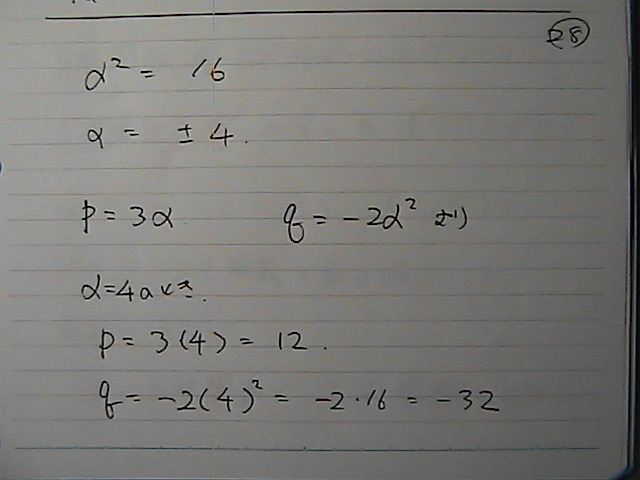 28
α² = 16
α = ± 4.
p = 3α q = -2α² より
α=4のとき.
p = 3(4) = 12.
q = -2(4)² = -2・16 = -32